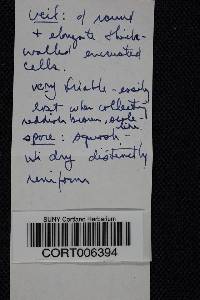 veil: of round
+ elongate thick-
walled encrusted
cells.
very friable - easily
lost when collect
reddish brown, scale-
like
spore: squash -
wi dry distinctly
reniform
SUNY Cortland Herbarium
CORT006394